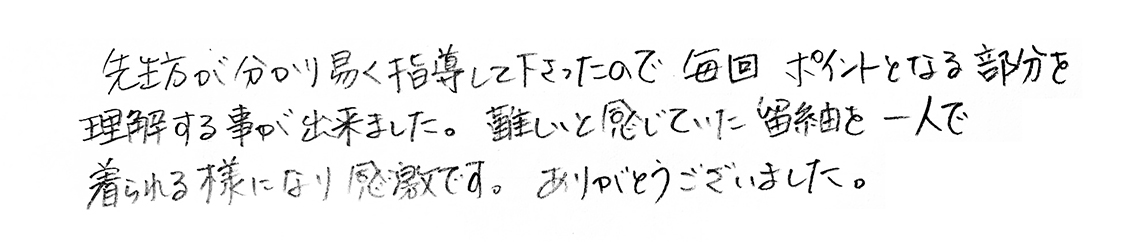 先生方が分かり易く指導して下さったので 毎回 ポイントとなる部分を
理解する事が出来ました。難しいと感じていた留紬を一人で
着られる様になり感激です。ありがとうございました。